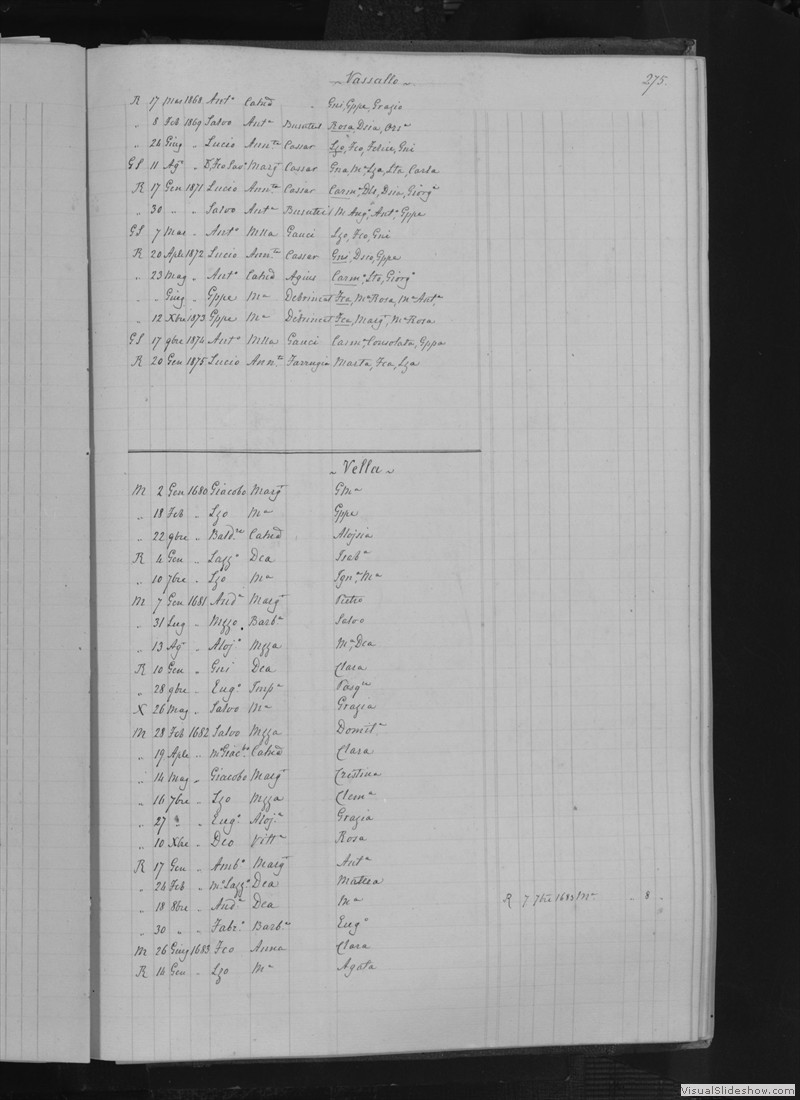 Vassallo 275.
R 17 Mar 1868 Antº Catnd " Gni, Gppe, Grazio
" 8 Feb 1869 Salvo Antª Busuttil Rosa, Dria, Orsª
" 24 Giug " Lucio Ann.ta Cassar Lzo, Fco, Felice, Gni
GS 11 Agº " D. Fco Savº Margt Cassar Gna, Mª Lza, Sta, Carla
R 17 Gen 1871 Lucio Ann.ta Cassar Carmº, Dria, Giorgª
" 30 " " Salvo Antª Busuttil M Angª, Antª, Gppa
GS 7 Mar " Antº Mlla Gauci Lzo, Fco, Gni
R 20 Aple 1872 Lucio Ann.ta Cassar Gni, Dro, Gppa
" 23 Mag " Antº Catnd Agius Carmº, Sto, Giorgº
" " Giug " Gppe Mª Debrincat Fca, Mª Rosa, Mª Antª
" 12 Xbre 1873 Gppe Mª Debrincat Fca, Margt, Mª Rosa
GS 17 9bre 1874 Antº Mlla Gauci Carmª Consolata, Gppa
R 20 Gen 1875 Lucio Ann.ta Farrugia Marta, Fca, Lza
Vella
M 2 Gen 1680 Giacobo Margt GMª
" 18 Feb " Lzo Mª Gppe
" 22 9bre " Bald.re Catnd Alojsia
R 4 Gen " Lazzº Dea Isabª
" 10 7bre " Lzo Mª Ignª Mª
M 7 Gen 1681 Andª Margt Pietro
" 31 Lug " Mzzo Barbª Salvo
" 13 Agº " Alojº Mzza Mª, Dea
R 10 Gen " Gni Dea Clara
" 28 9bre " Eugº Impª Pasq.le
X 26 Mag " Salvo Mª Grazia
M 28 Feb 1682 Salvo Mzza Domitª
" 19 Aple " Mº Giac.bo Catnd Clara
" 14 Mag " Giacobo Margt Cristina
" 16 7bre " Lzo Mzza Clemª
" 27 " " Eugº Alojª Grazia
" 10 Xbre " Deo Vittª Rosa
R 17 Gen " Ambº Margt Antª
" 24 Feb " Mº Lazzº Dea Mattea
" 18 8bre " Andª Dea Mª R 7 7bre 1683 Mª " 8 "
" 30 " " Fabrº Barbª Eugº
M 26 Giug 1683 Fco Anna Clara
R 14 Gen " Lzo Mª Agata
VisualSlideshow.com